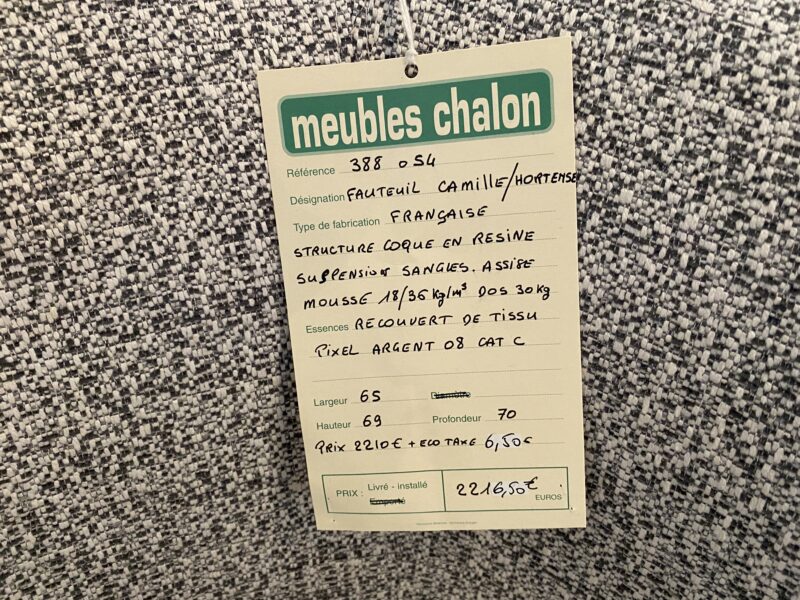 meubles chalon
Référence 388 054
Désignation FAUTEUIL CAMILLE/HORTENSE
Type de fabrication FRANÇAISE
STRUCTURE COQUE EN RESINE
SUSPENSION SANGLES. ASSISE
MOUSSE 18/36 Kg/m³ DOS 30Kg
Essences RECOUVERT DE TISSU
PIXEL ARGENT 08 CAT C
Largeur 65 Diamètre
Hauteur 69 Profondeur 70
PRIX 2210€ + ECO TAXE 6,50€
PRIX : Livré - installé 2216,50€
Emporté EUROS